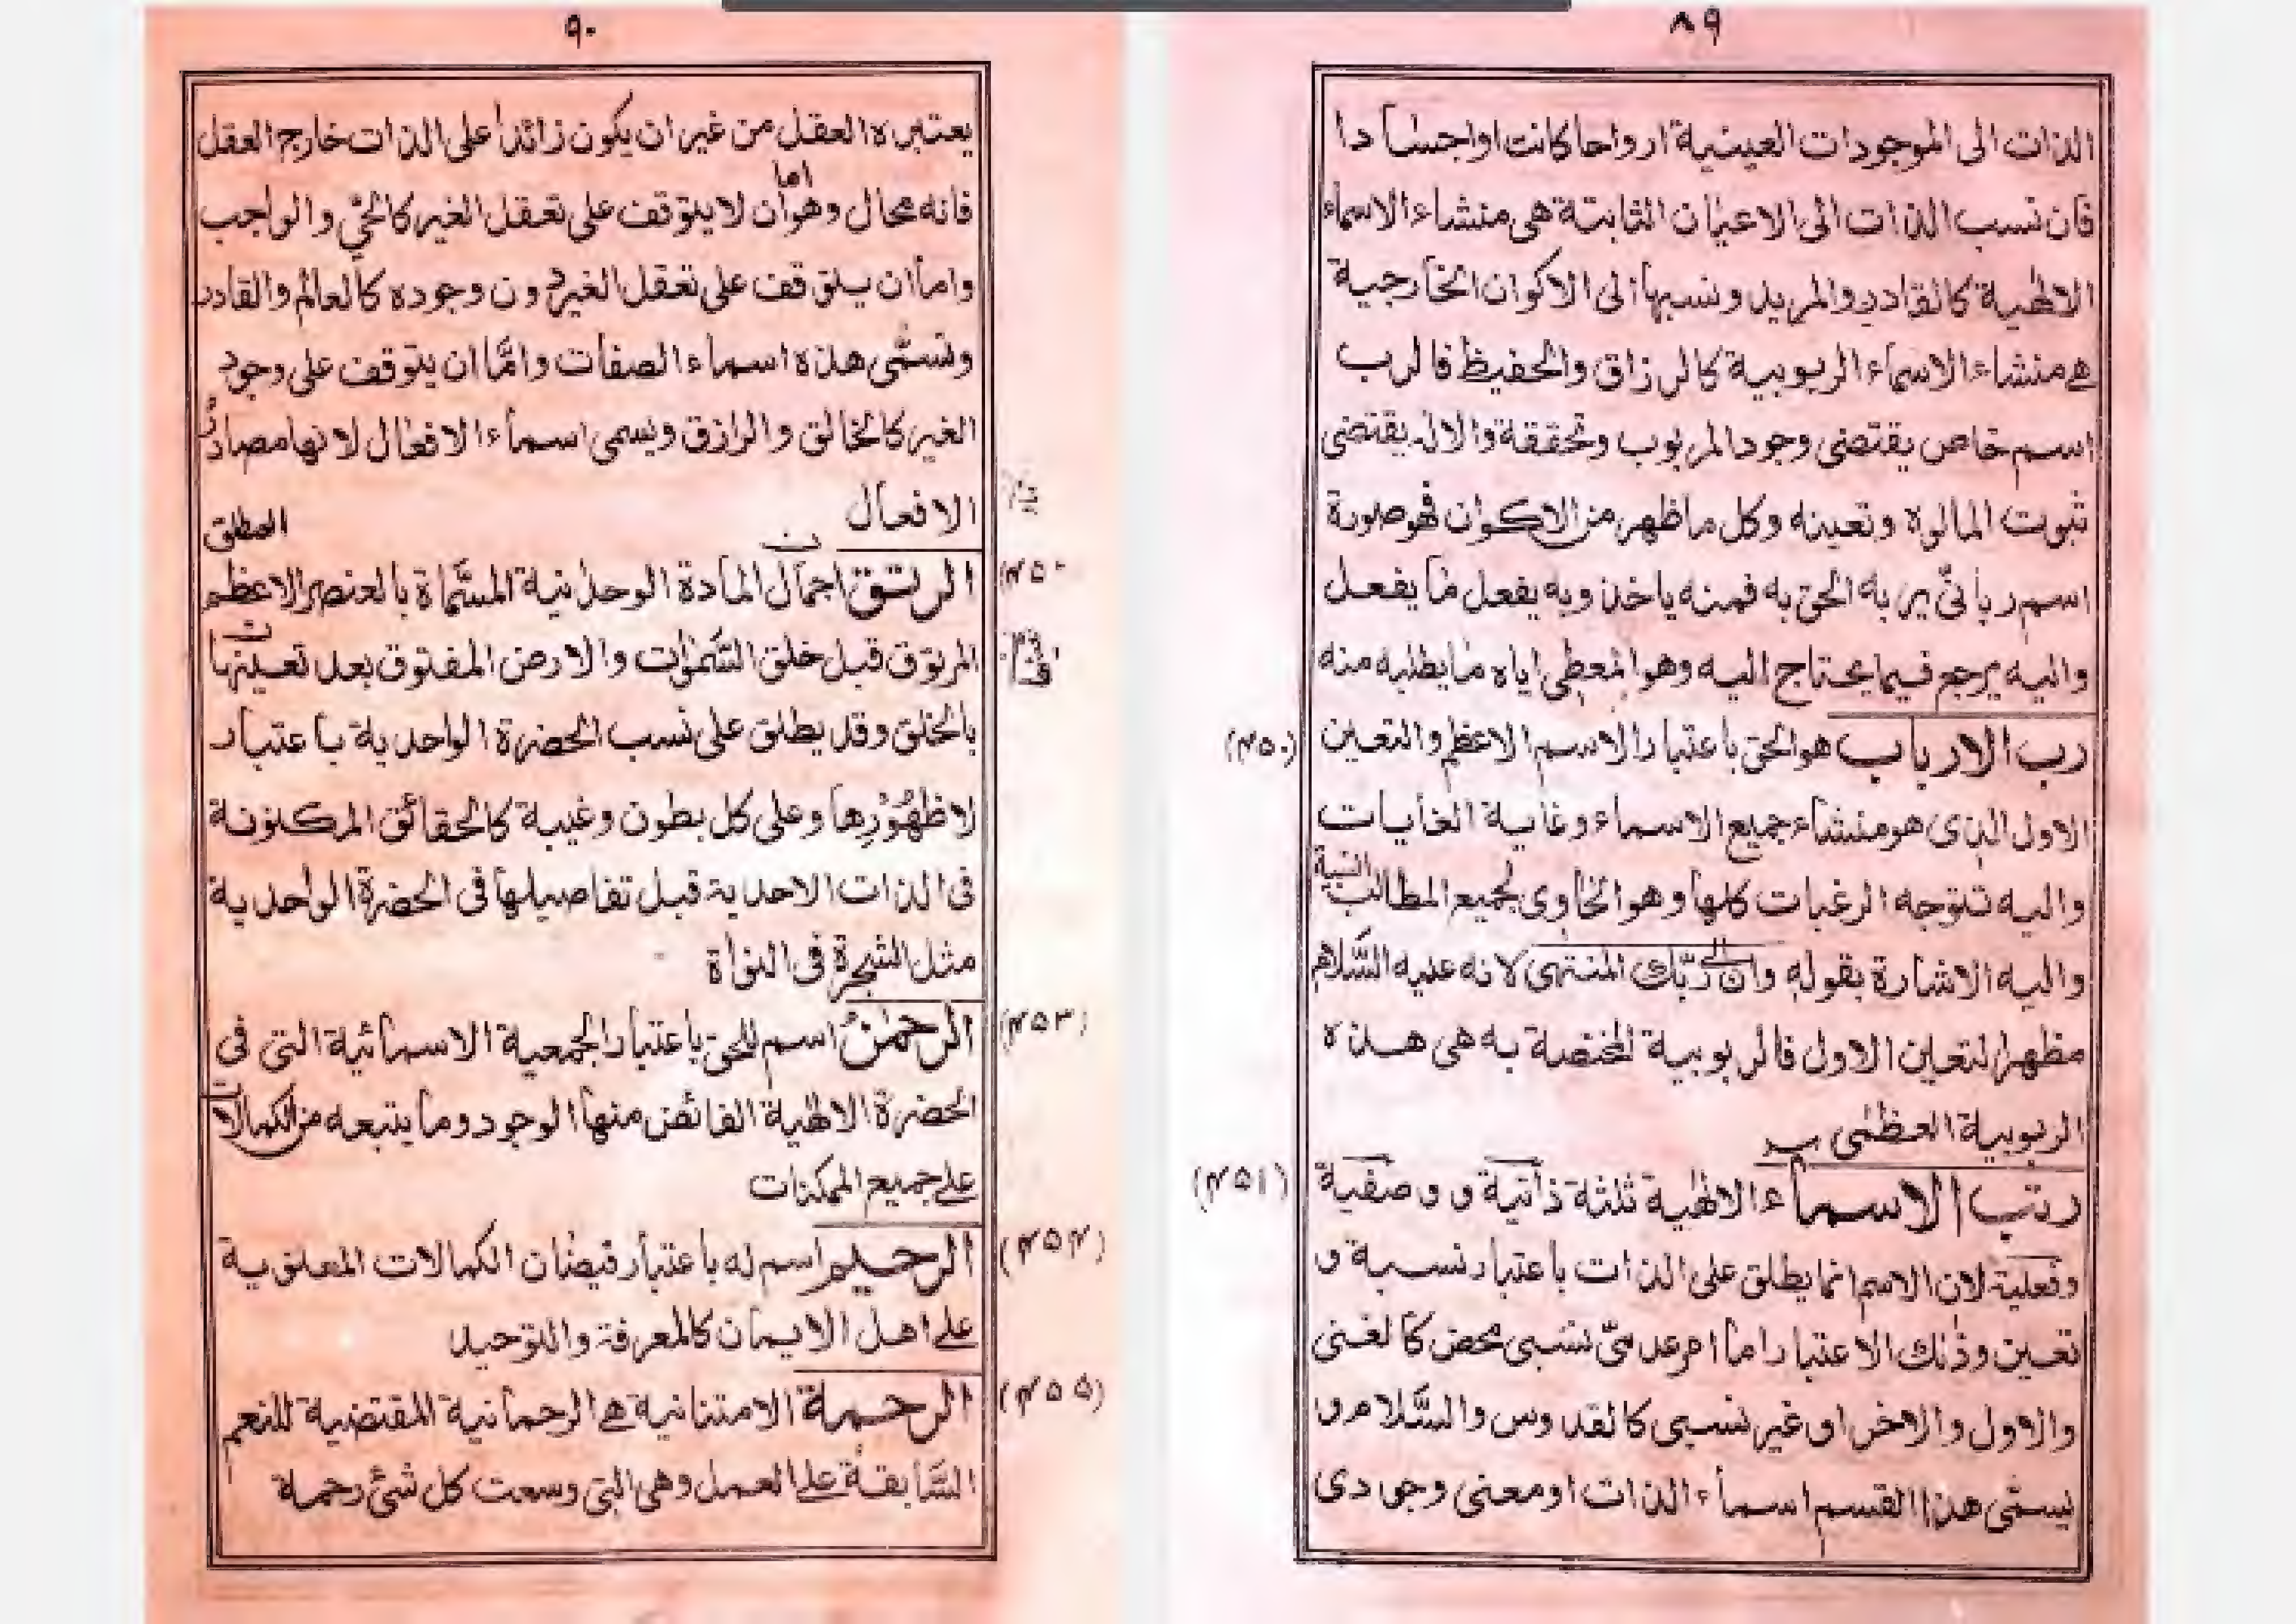 ٨٩
الذات الى الموجودات العينية ارواحا كانت او اجسادا
فان نسب الذات الى الاعيان الثابتة هى منشاء الاسماء
الالهية كالقادر والمريد ونسبها الى الاكوان الخارجية
هے منشاء الاسماء الربوبية كالرزاق والحفيظ فالرب
اسم خاص يقتضى وجود المربوب وتحققة والاله يقتضى
ثبوت المالوه وتعينه وكل ما ظهر من الاكوان فهو صورة
اسم ربانىّ يربه الحق به فمنه ياخذ وبه يفعل ما يفعل
واليه يرجع فيما يحتاج اليه وهو المعطى اياه ما يطلبه منه
رب الارباب هو الحق باعتبار الاسم الاعظم والتعين (۴۵۰)
الاول الذى هو منشاء جميع الاسماء وغاية الغايات
واليه تتوجه الرغبات كلها وهو الحاوى لجميع المطالب
واليه الاشارة بقوله وان الى ربّك المنتهى لانه عليه السّلام
مظهر التعين الاول فالربوبية المختصة به هى هذه
الربوبية العظمٰى
رتب الاسماء الالهية ثلثة ذاتية و وصفية (۴۵۱)
وفعلية لان الاسم انما يطلق على الذات باعتبار نسبة و
تعين وذٰلك الاعتبار اما امر عدمىّ نسبى محض كالغنى
والاول والاخر او غير نسبى كالقدوس والسّلام و
يسمّى هذا القسم اسماء الذات او معنى وجودى
٩٠
يعتبره العقل من غير ان يكون زائدا على الذات خارج العقل
فانه محال وهو اما ان لا يتوقف على تعقل الغير كالحىّ والواجب
واما ان يتوقف على تعقل الغير دون وجوده كالعالم والقادر
وتسمّى هذه اسماء الصفات وامّا ان يتوقف على وجود
الغير كالخالق والرازق ويسمى اسماء الافعال لانها مصادر
الافعال
المطلق
الرتق اجمال المادة الوحدانية المسّماة بالعنصر الاعظم
المرتوق قبل خلق السّمٰوٰت والارض المفتوق بعد تعينها
بالخلق وقد يطلق على نسب الحضرة الواحدية باعتبار
لا ظهُوْرِها وعلى كل بطون وغيبة كالحقائق المكنونة
فى الذات الاحدية قبل تفاصيلها فى الحضرة الواحدية
مثل الشجرة فى النواة
الرحمٰنُ اسم للحق باعتبار الجمعية الاسمائية التى فى (۴۵۳)
الحضرة الالهية الفائض منها الوجود وما يتبعه من الكمالات
علے جميع الممكنات
الرحيم اسم له باعتبار فيضان الكمالات المعنوية (۴۵۴)
علے اهل الايمان كالمعرفة والتوحيد
الرحمة الامتنانية هے الرحمانية المقتضية للنعم (۴۵۵)
السّابقة علے العمل وهى التى وسعت كل شئ رحمة